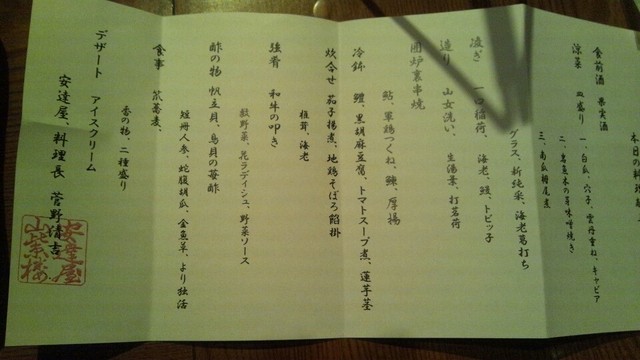 本日の料理
食前酒 果実酒
涼菜 三皿盛り 一、白瓜、穴子、雲丹重ね、キャビア
二、岩魚木の芽味噌焼き
三、南瓜細尾煮
グラス、新順采、海老葛打ち
凌ぎ 一口稲荷 海老、鰻、トビッ子
造り 山女洗い、生湯葉、打茗荷
囲炉裏串焼
鮎、軍鶏つくね、鰊、厚揚
冷鉢 鱧、黒胡麻豆腐、トマトスープ煮、蓮芋茎
炊合せ 茄子揚煮、地鶏そぼろ餡掛
椎茸、海老
強肴 和牛の叩き
数野菜、花ラディシュ、野菜ソース
酢の物 帆立貝、鳥貝の苺酢
短冊人参、蛇腹胡瓜、金魚草、より独活
食事 茶蕎麦、
香の物、二種盛り
デザート アイスクリーム
安達屋、料理長 菅野清吉
安達屋
山紫楼